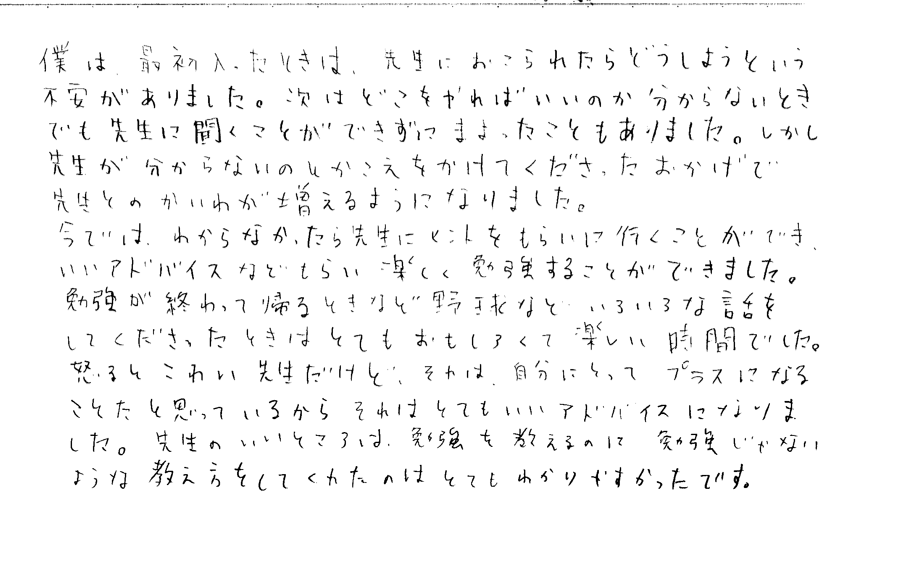 僕は、最初入ったときは、先生におこられたらどうしようという
不安がありました。次はどこをやればいいのか分からないとき
でも先生に聞くことができずにまよったこともありました。しかし
先生が分からないのとかこえをかけてくださったおかげで
先生とのかいわが増えるようになりました。
今では、わからなかったら先生にヒントをもらいに行くことができ、
いいアドバイスなどもらい楽しく勉強することができました。
勉強が終わって帰るときなど野球など いろいろな話を
してくださったときはとてもおもしろくて楽しい時間でした。
怒るとこわい先生だけど、それは、自分にとってプラスになる
ことたと思っているからそれはとてもいいアドバイスになりま
した。先生のいいところは、勉強を教えるのに勉強じゃない
ような教え方をしてくれたのはとてもわかりやすかったです。